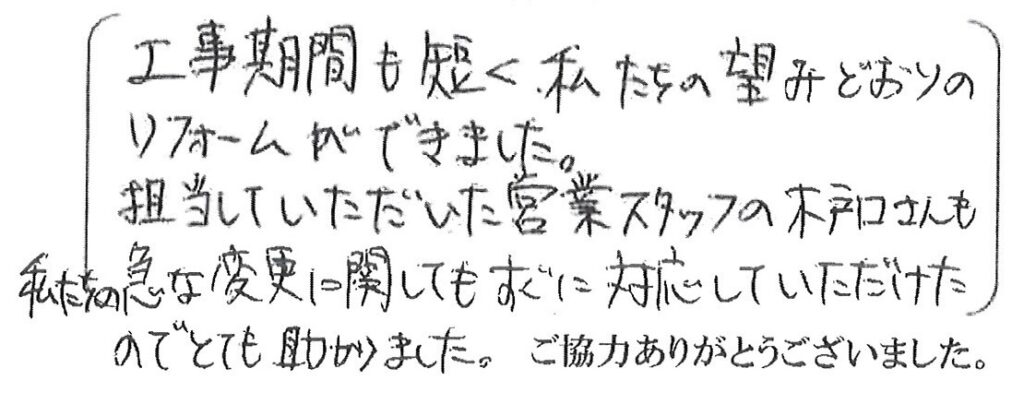 工事期間も短く、私たちの望みどおりの
リフォームができました。
担当していただいた営業スタッフの木戸口さんも
私たちの急な変更に関してもすぐに対応していただけた
のでとても助かりました。 ご協力ありがとうございました。